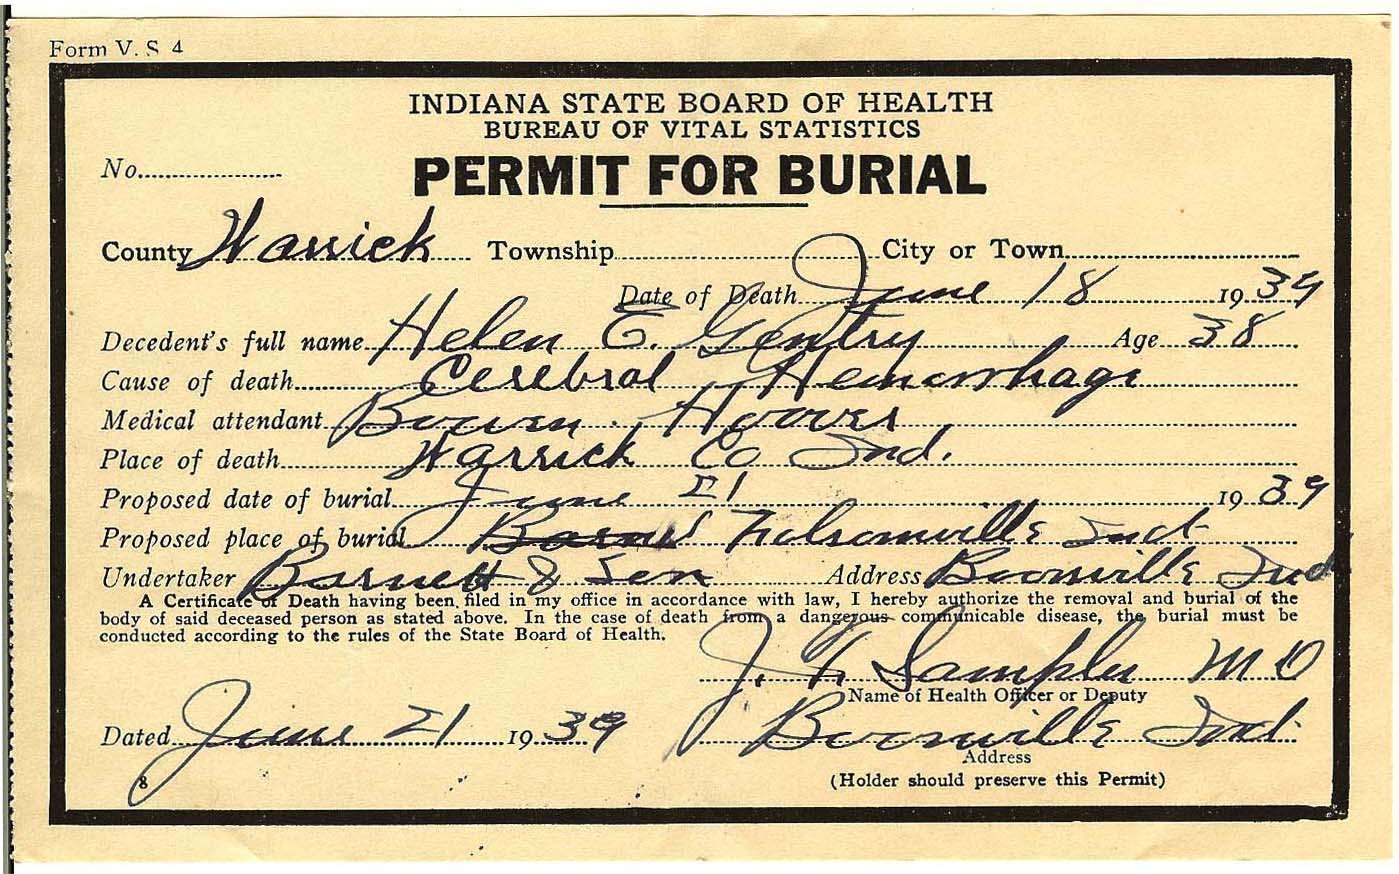 Form V. S. 4
INDIANA STATE BOARD OF HEALTH
BUREAU OF VITAL STATISTICS
No.
PERMIT FOR BURIAL
County Warrick Township City or Town
Date of Death June 18 1939
Decedent's full name Helen E. Gentry Age 38
Cause of death Cerebral Hemorrhage
Medical attendant Bowen Hoover
Place of death Warrick Co Ind.
Proposed date of burial June 21 1939
Proposed place of burial Folsomville Ind
Undertaker Barnett & Son Address Boonville Ind
A Certificate of Death having been filed in my office in accordance with law, I hereby authorize the removal and burial of the
body of said deceased person as stated above. In the case of death from a dangerous communicable disease, the burial must be
conducted according to the rules of the State Board of Health.
J. Y. Samples MD
Name of Health Officer or Deputy
Dated June 21 1939 Boonville Ind.
Address
8 (Holder should preserve this Permit)